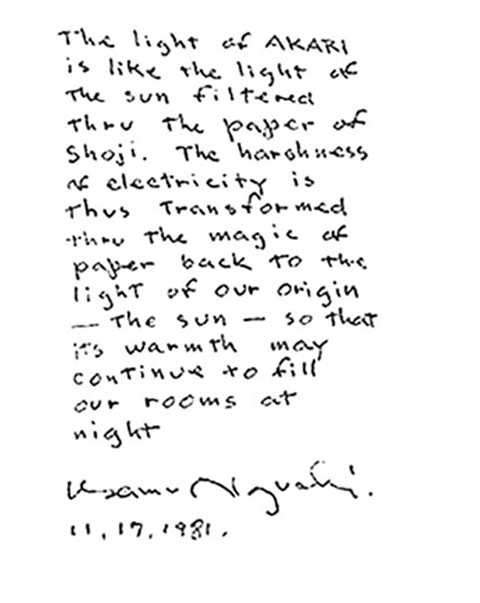 The light of AKARI
is like the light of
The sun filtered
Thru The paper of
Shoji. The harshness
of electricity is
Thus Transformed
thru The magic of
paper back To the
light of our origin
— The sun — so that
it's warmth may
continue to fill
our rooms at
night
Isamu Noguchi.
11.17.1981.